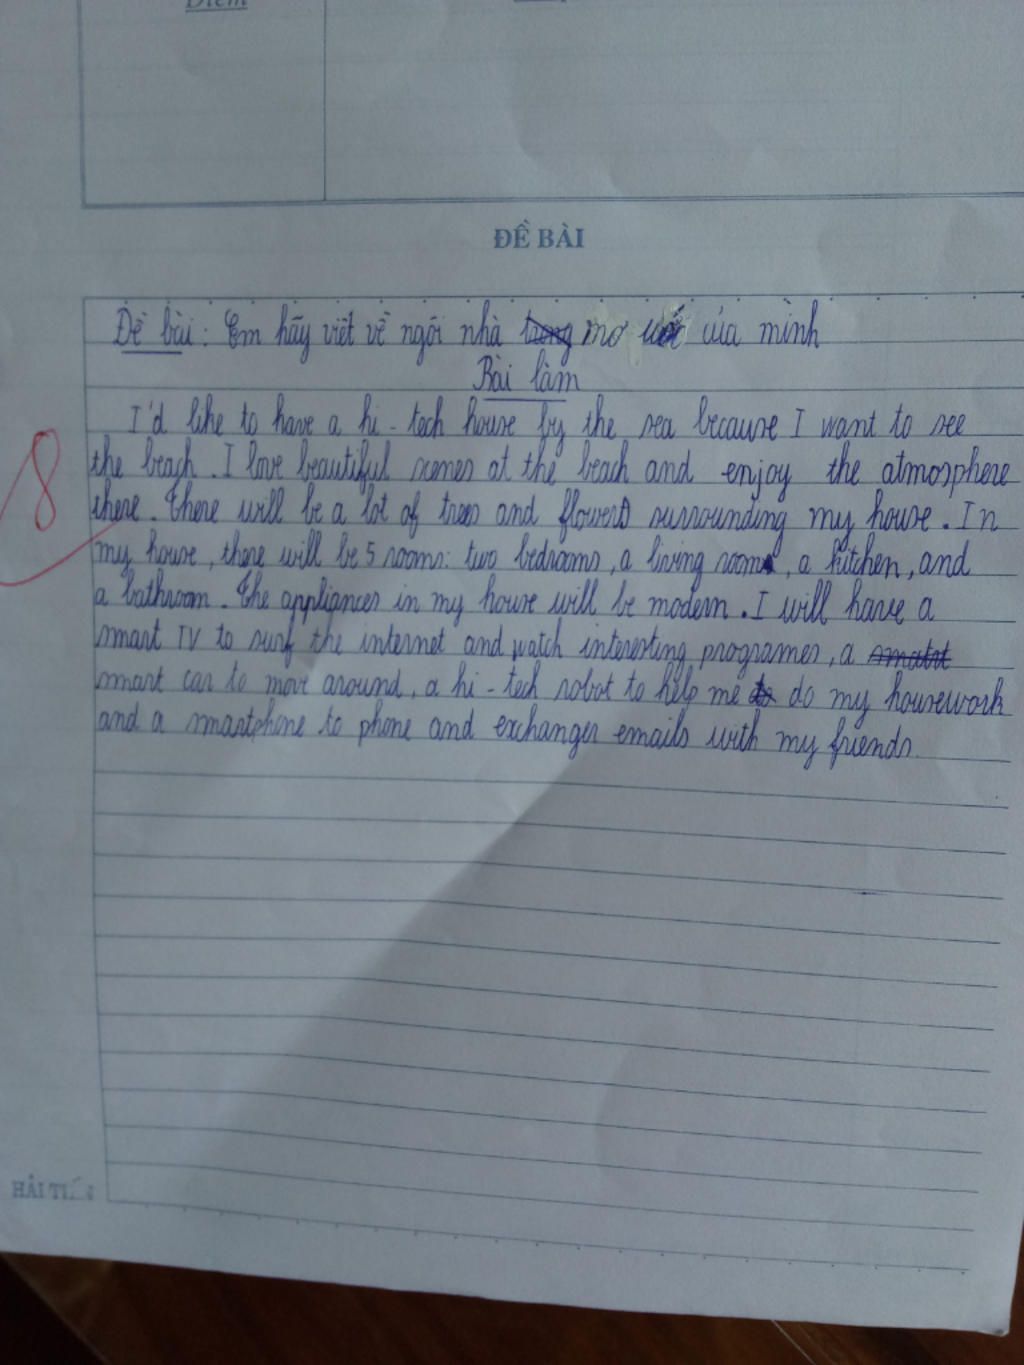 Điểm
ĐỀ BÀI
Đề bài : Em hãy viết về ngôi nhà trong mơ ước của mình
Bài làm
I'd like to have a hi - tech house by the sea because I want to see
the beach . I love beautiful scenes at the beach and enjoy the atmosphere
there . There will be a lot of trees and flowers surrounding my house . In
my house , there will be 5 rooms : two bedrooms , a living room , a kitchen , and
a bathroom . The appliances in my house will be modern . I will have a
smart TV to surf the internet and watch interesting programes , a smatrt
smart car to move around , a hi - tech robot to help me to do my housework
and a smartphone to phone and exchanges emails with my friends .
8
HẢI TIẾN